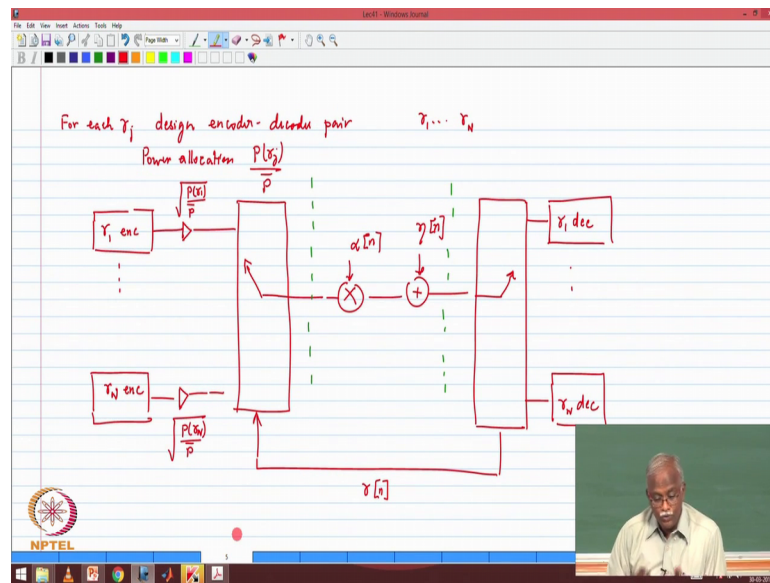 Lec41 - Windows Journal
File Edit View Insert Actions Tools Help
Page Width
B I
For each γj design encoder-decoder pair γ1 ... γN
Power allocation P(γj)/P̄
√P(γ1)/P̄
γ1 enc
α[n]
η[n]
γ1 dec
×
+
γN enc
γN dec
√P(γN)/P̄
γ[n]
NPTEL
5